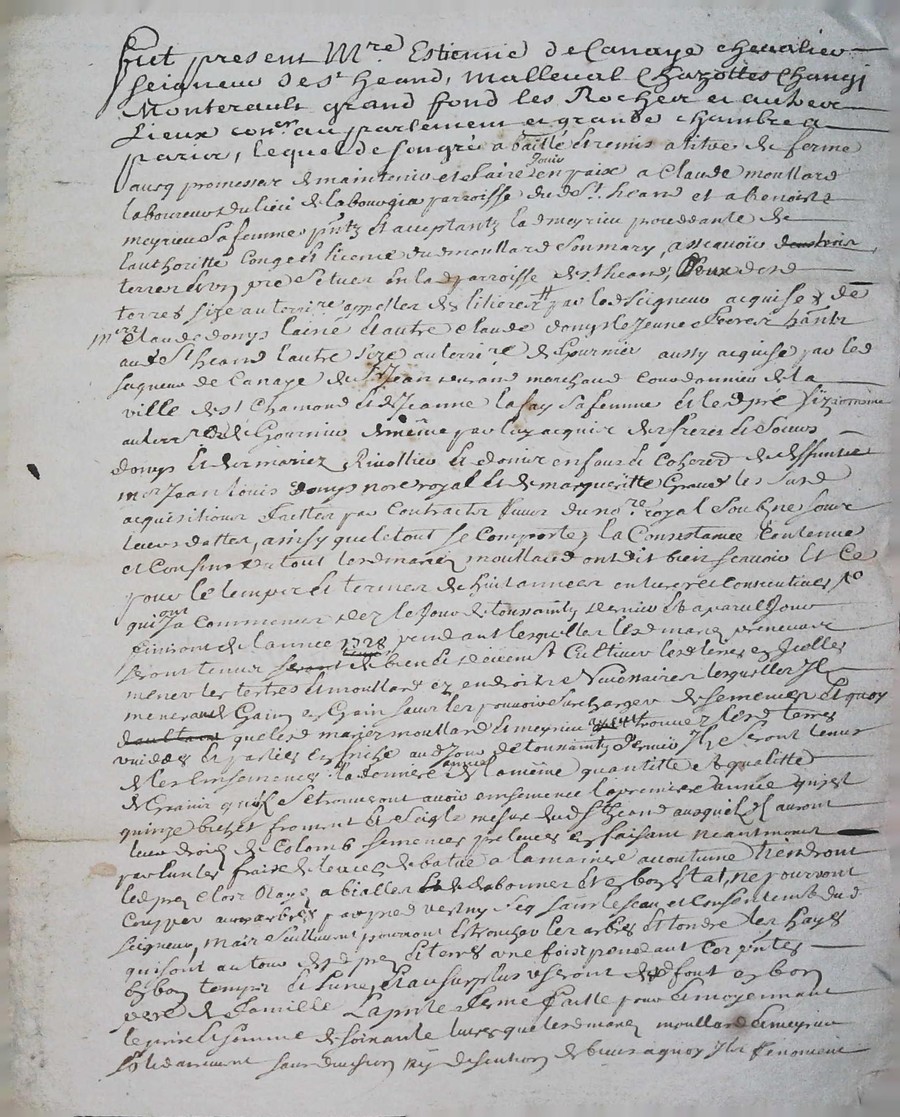 fut present Mre Estienne de Canaye chevalier
seigneur de st heand, malleval Chazottes Changy
Monterault grand fond les Rocher et autres
Lieux coner au parlement et grande chambre a
paris, lequel de son gré a baillé et remis a titre de ferme
avecq promesse de maintenir et faire jouir en paix a Claude moullard
laboureur du lieu de la bourgia parroisse dud st heand et a benoiste
meyrieu sa femme pntz et acceptantz lad meyrieu procedante de
l'authoritte conge et licence dud moullard son mary, a scavoir
terres et un pre scituez en lad parroisse de st heand, Deux desd
terres size au terroire appellez des litieres par led seigneur acquise de
mres Claude donys lainé et autre Claude donys le jeune freres hantz
aud st heand l'autre size au terroire de Gournier aussy acquise par led
seigneur de Canaye de sr Jean marchand de la
ville de st Chamond et de Jeanne lafay sa femme et led pre size
au terroire de Gournier de même par luy acquis des freres et soeurs
donys et des mariez Rivollier et donis enfans et coherd de deffunt
mre Jean Louis donys nore royal et de margueritte les susd
acquisitions faittes par contracts receus du nore royal soubzne sous
leurs dattes, ainsy que le tout se comporte la Consistance Contenue
et Confins du tout lesd mariez moullard ont dit bien scavoir Et Ce
pour le temps et termes de huit années entieres et consecutives
qui ont commencer dez le jour de toussaintz dernier et a pareil jour
finiront de l'annee 1728 pendant lesquelles lesd mariez preneurs
seront tenus de bien et deüement Cultiver lesd terres et Icelles
mener les tertres et moullard et endroits necessaires lesquelles Ilz
meneront Gain et Gain sans les pouvoir surcharger de semences Et quoy
que lesd mariez moullard et meyrieu trouvez lesd terres
vuides et parties en friche aud jour de toussaintz dernier Ilz seront tenus
de les ensemencer la derniere annee de la même quantitté et qualitté
de Grains qu'ils se trouveront avoir ensemencé la premiere annee qui est
quinze bichet froment et seigle mesure dud st heand ausquels Ilz auront
leur droit de Colomb semences prelevees en faisant neantmoins
par eux les fraix de levees et batue a la maniere accoutumé tiendront
led pre clos Rayé a bialler et de abonner et en bon Estat, ne pourront
Coupper aucuns arbres par pied vert ny seq sans le sceau et consentemt dud
seigneur, mais seullement pourront estroncher les arbres et tondre les hayes
qui sont au tour desd pre et terres une fois pendant Ces pntes
En bon temps et lune, Et au surplus useront dud font en bon
pere de famille La pnte ferme faitte pour et moyennant
le prix et somme de soixante livres que lesd mariez moullard et meyrieu
solidairement sans division ny discution de biens a quoy Ilz renoncent